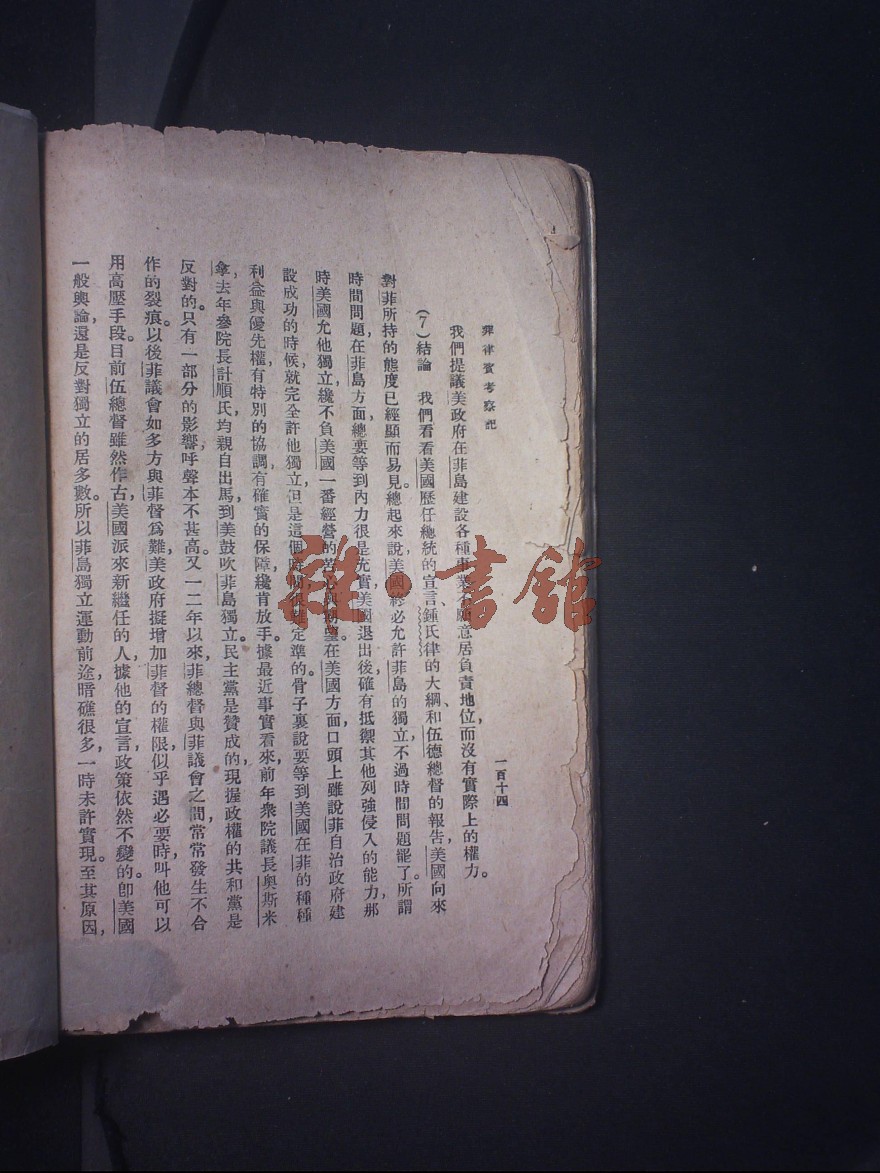 菲律賓考察記
一百十四
我們提議美政府在菲島建設各種事業不願意居負責地位,而沒有實際上的權力。
(7)結論 我們看看美國歷任總統的宣言、鍾氏律的大綱、和伍德總督的報告,美國向來
對菲所持的態度已經顯而易見。總起來說,美國終必允許菲島的獨立,不過時間問題罷了。所謂
時間問題,在菲島方面,總要等到內力很是充實,美國退出後,確有抵禦其他列強侵入的能力,那
時美國允他獨立,纔不負美國一番經營的苦心與期望。在美國方面,口頭上雖說菲自治政府建
設成功的時候,就完全許他獨立,但是這個時間很難定準的。骨子裏說,要等到美國在菲的種種
利益與優先權,有特別的協調,有確實的保障,纔肯放手。據最近事實看來,前年衆院議長奧斯米
拿,去年參院長計順氏,均親自出馬,到美鼓吹菲島獨立。民主黨是贊成的,現握政權的共和黨是
反對的。只有一部分的影響,呼聲本不甚高。又一二年以來,菲總督與菲議會之間,常常發生不合
作的裂痕。以後菲議會如多方與菲督爲難,美政府擬增加菲督的權限,似乎遇必要時,叫他可以
用高壓手段。目前伍總督雖然作古,美國派來新繼任的人,據他的宣言,政策依然不變的。卽美國
一般輿論,還是反對獨立的居多數。所以菲島獨立運動前途,暗礁很多,一時未許實現。至其原因,
雜·書館